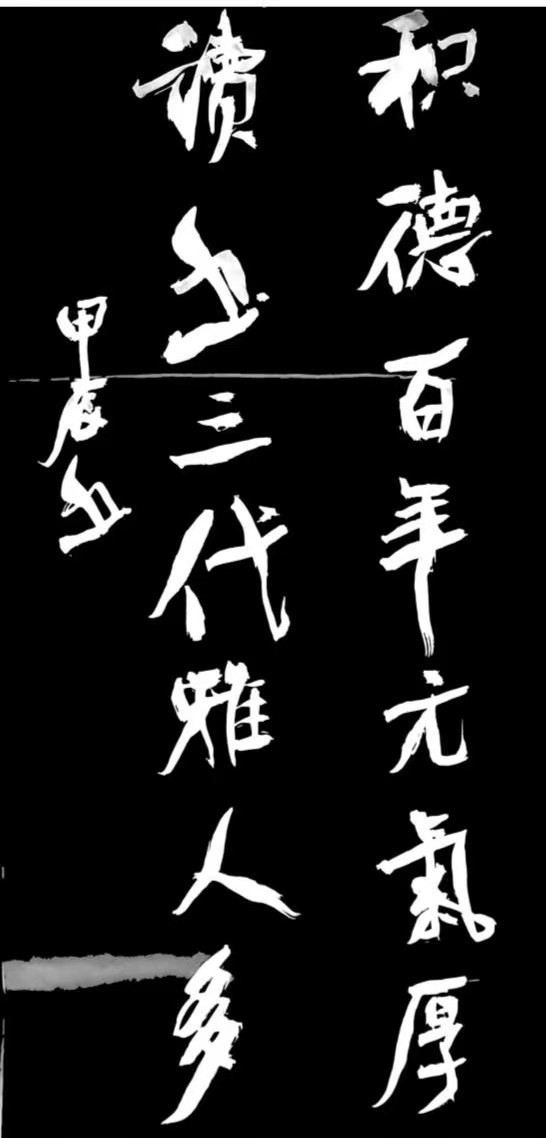 积德百年元氣厚
讀书三代雅人多
甲辰书